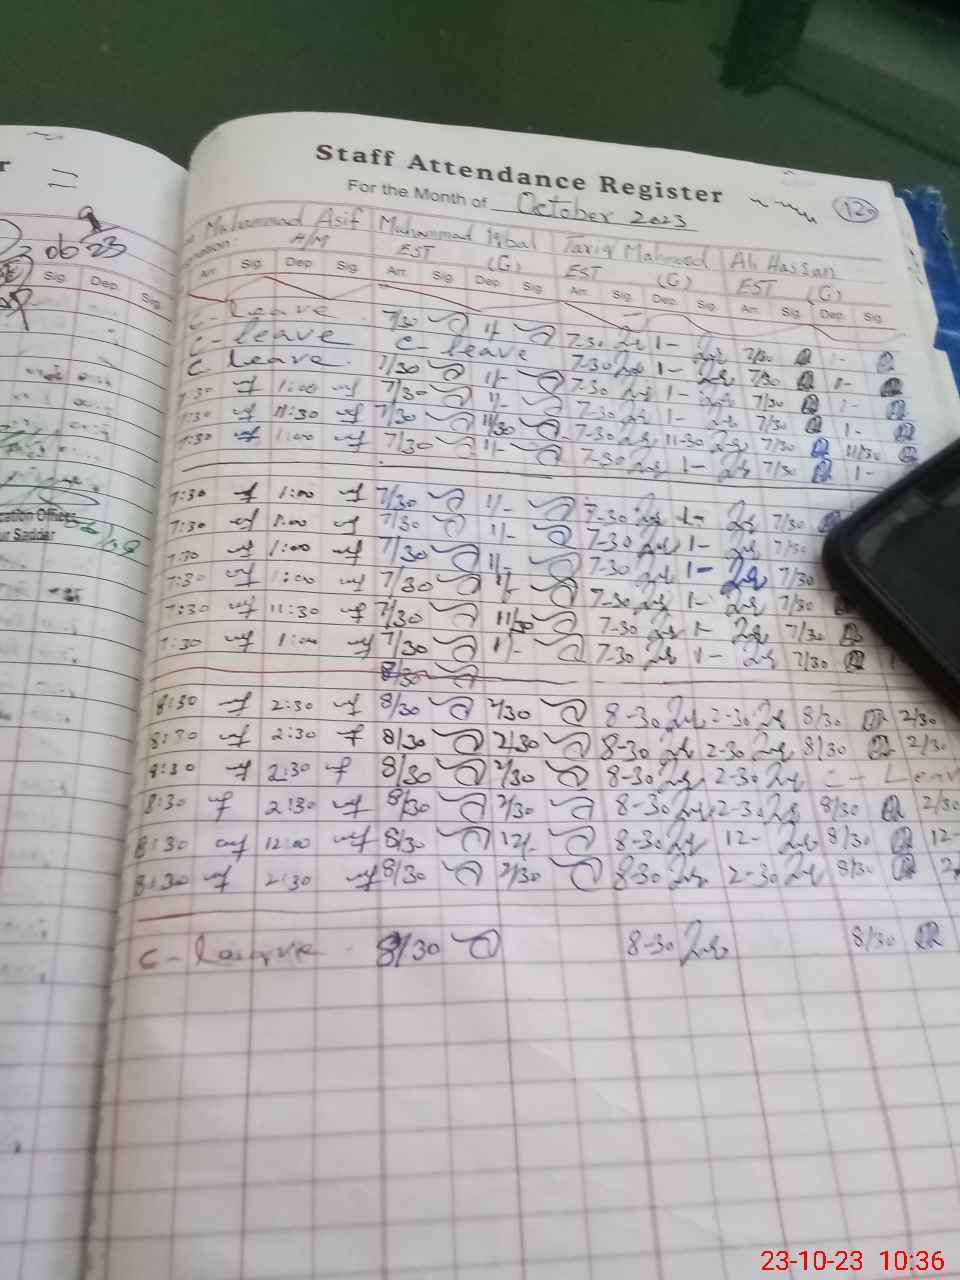 Staff Attendance Register
For the Month of October 2023
120
Muhammad Asif Muhammad Iqbal Tariq Mahmood Ali Hassan
H/M EST (G) EST (G) EST (G)
Arr. Sig. Dep. Sig. Arr. Sig. Dep. Sig. Arr. Sig. Dep. Sig. Arr. Sig. Dep. Sig.
C- leave 7/30 1/- 7-30 1- 7/30 1-
C- leave C- leave 7-30 1- 7/30 1-
C. leave. 7/30 1/- 7-30 1- 7/30 1-
7:30 1:00 7/30 1/- 7-30 1- 7/30 1-
7:30 11:30 7/30 11/30 7-30 11-30 7/30 11/30
7:30 1:00 7/30 1/- 7-30 1- 7/30 1-
7:30 1:00 7/30 1/- 7-30 1- 7/30
7:30 1:00 7/30 1/- 7-30 1- 7/30
7:30 1:00 7/30 1/- 7-30 1- 7/30
7:30 1:00 7/30 1/- 7-30 1- 7/30
7:30 11:30 7/30 11/30 7-30 1- 7/30
7:30 1:00 7/30 1/- 7-30 1- 7/30
8/30
8:30 2:30 8/30 2/30 8-30 2-30 8/30 2/30
8:30 2:30 8/30 2/30 8-30 2-30 8/30 2/30
8:30 2:30 8/30 2/30 8-30 2-30 C- Leav
8:30 2:30 8/30 2/30 8-30 2-30 8/30 2/30
8:30 12:00 8/30 12/- 8-30 12- 8/30 12-
8:30 2:30 8/30 2/30 8-30 2-30 8/30 2
C- leavve. 8/30 8-30 8/30
06 23
Sig. Dep. Sig.
ur Saddar
23-10-23 10:36